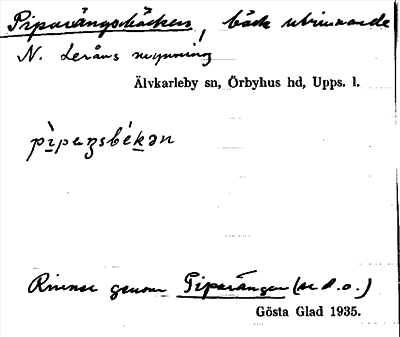 Piparängsbäcken, bäck utrinnande
N. Leråns mynning
Älvkarleby sn, Örbyhus hd, Upps. l.
Rinner genom Piparängen (se d.o.)
Gösta Glad 1935.